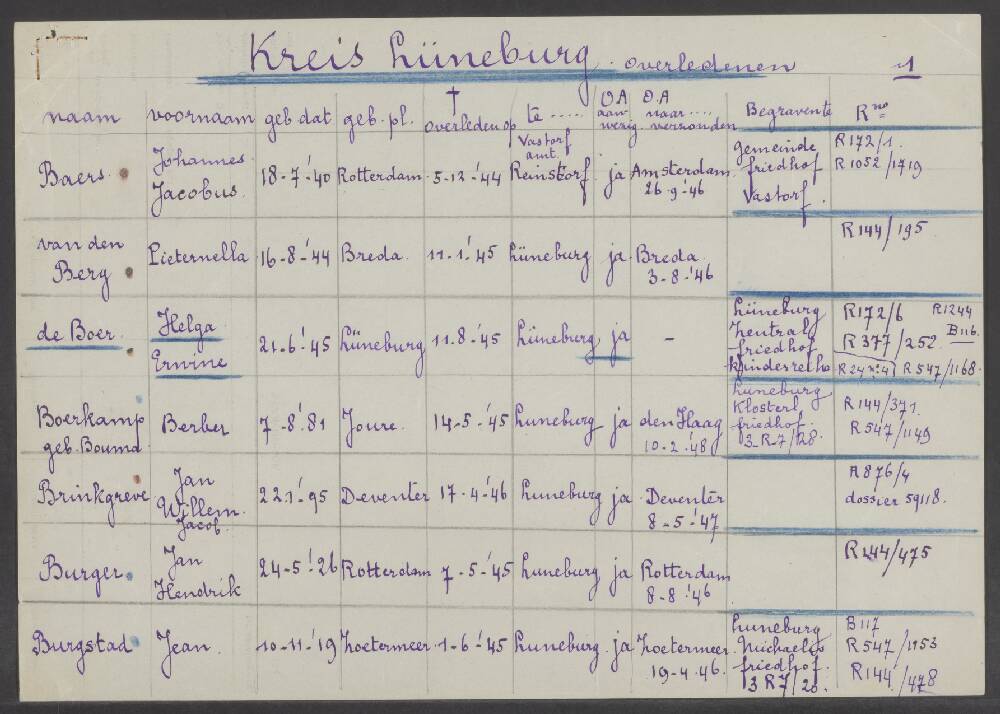 Kreis Lüneburg. overledenen 1
naam voornaam geb dat geb. pl. † overleden op te ..... O.A aanwezig. O.A naar .... verzonden Begraven te R no
Baers. Johannes Jacobus. 18-7-'40 Rotterdam. 5-12-'44 Vastorf amt. Reinstorf. ja Amsterdam. 26-9-'46 gemeinde friedhof Vastorf. R172/1. R1052/1719
van den Berg Pieternella 16-8-'44 Breda. 11-1-'45 Lüneburg ja Breda. 3-8-'46 R144/195
de Boer. Helga Erwine 21-6-'45 Lüneburg 11-8-'45 Lüneburg ja - Lüneburg Zentral friedhof R172/6 R1244 B116. R377/252. R24 no 41 R547/1168.
Boerkamp geb. Bouma Berber 7-8-'81 Joure. 14-5-'45 Luneburg ja den Haag 10-2-'48 Luneburg Klosterl friedhof. 3-R-7/28. R144/371. R547/1149
Brinkgreve Jan Willem. Jacob. 22-1-'95 Deventer 17-4-'46 Luneburg ja Deventer 8-5-'47 A876/4 dossier 59118.
Burger. Jan Hendrik 24-5-'26 Rotterdam 7-5-'45 Luneburg ja Rotterdam 8-8-'46 R144/475
Burgstad Jean. 10-11-'19 Zoetermeer 1-6-'45 Luneburg. ja Zoetermeer. 19-4-46. Luneburg Michaelis friedhof. 3 R7/28. B117 R547/1953 R144/478